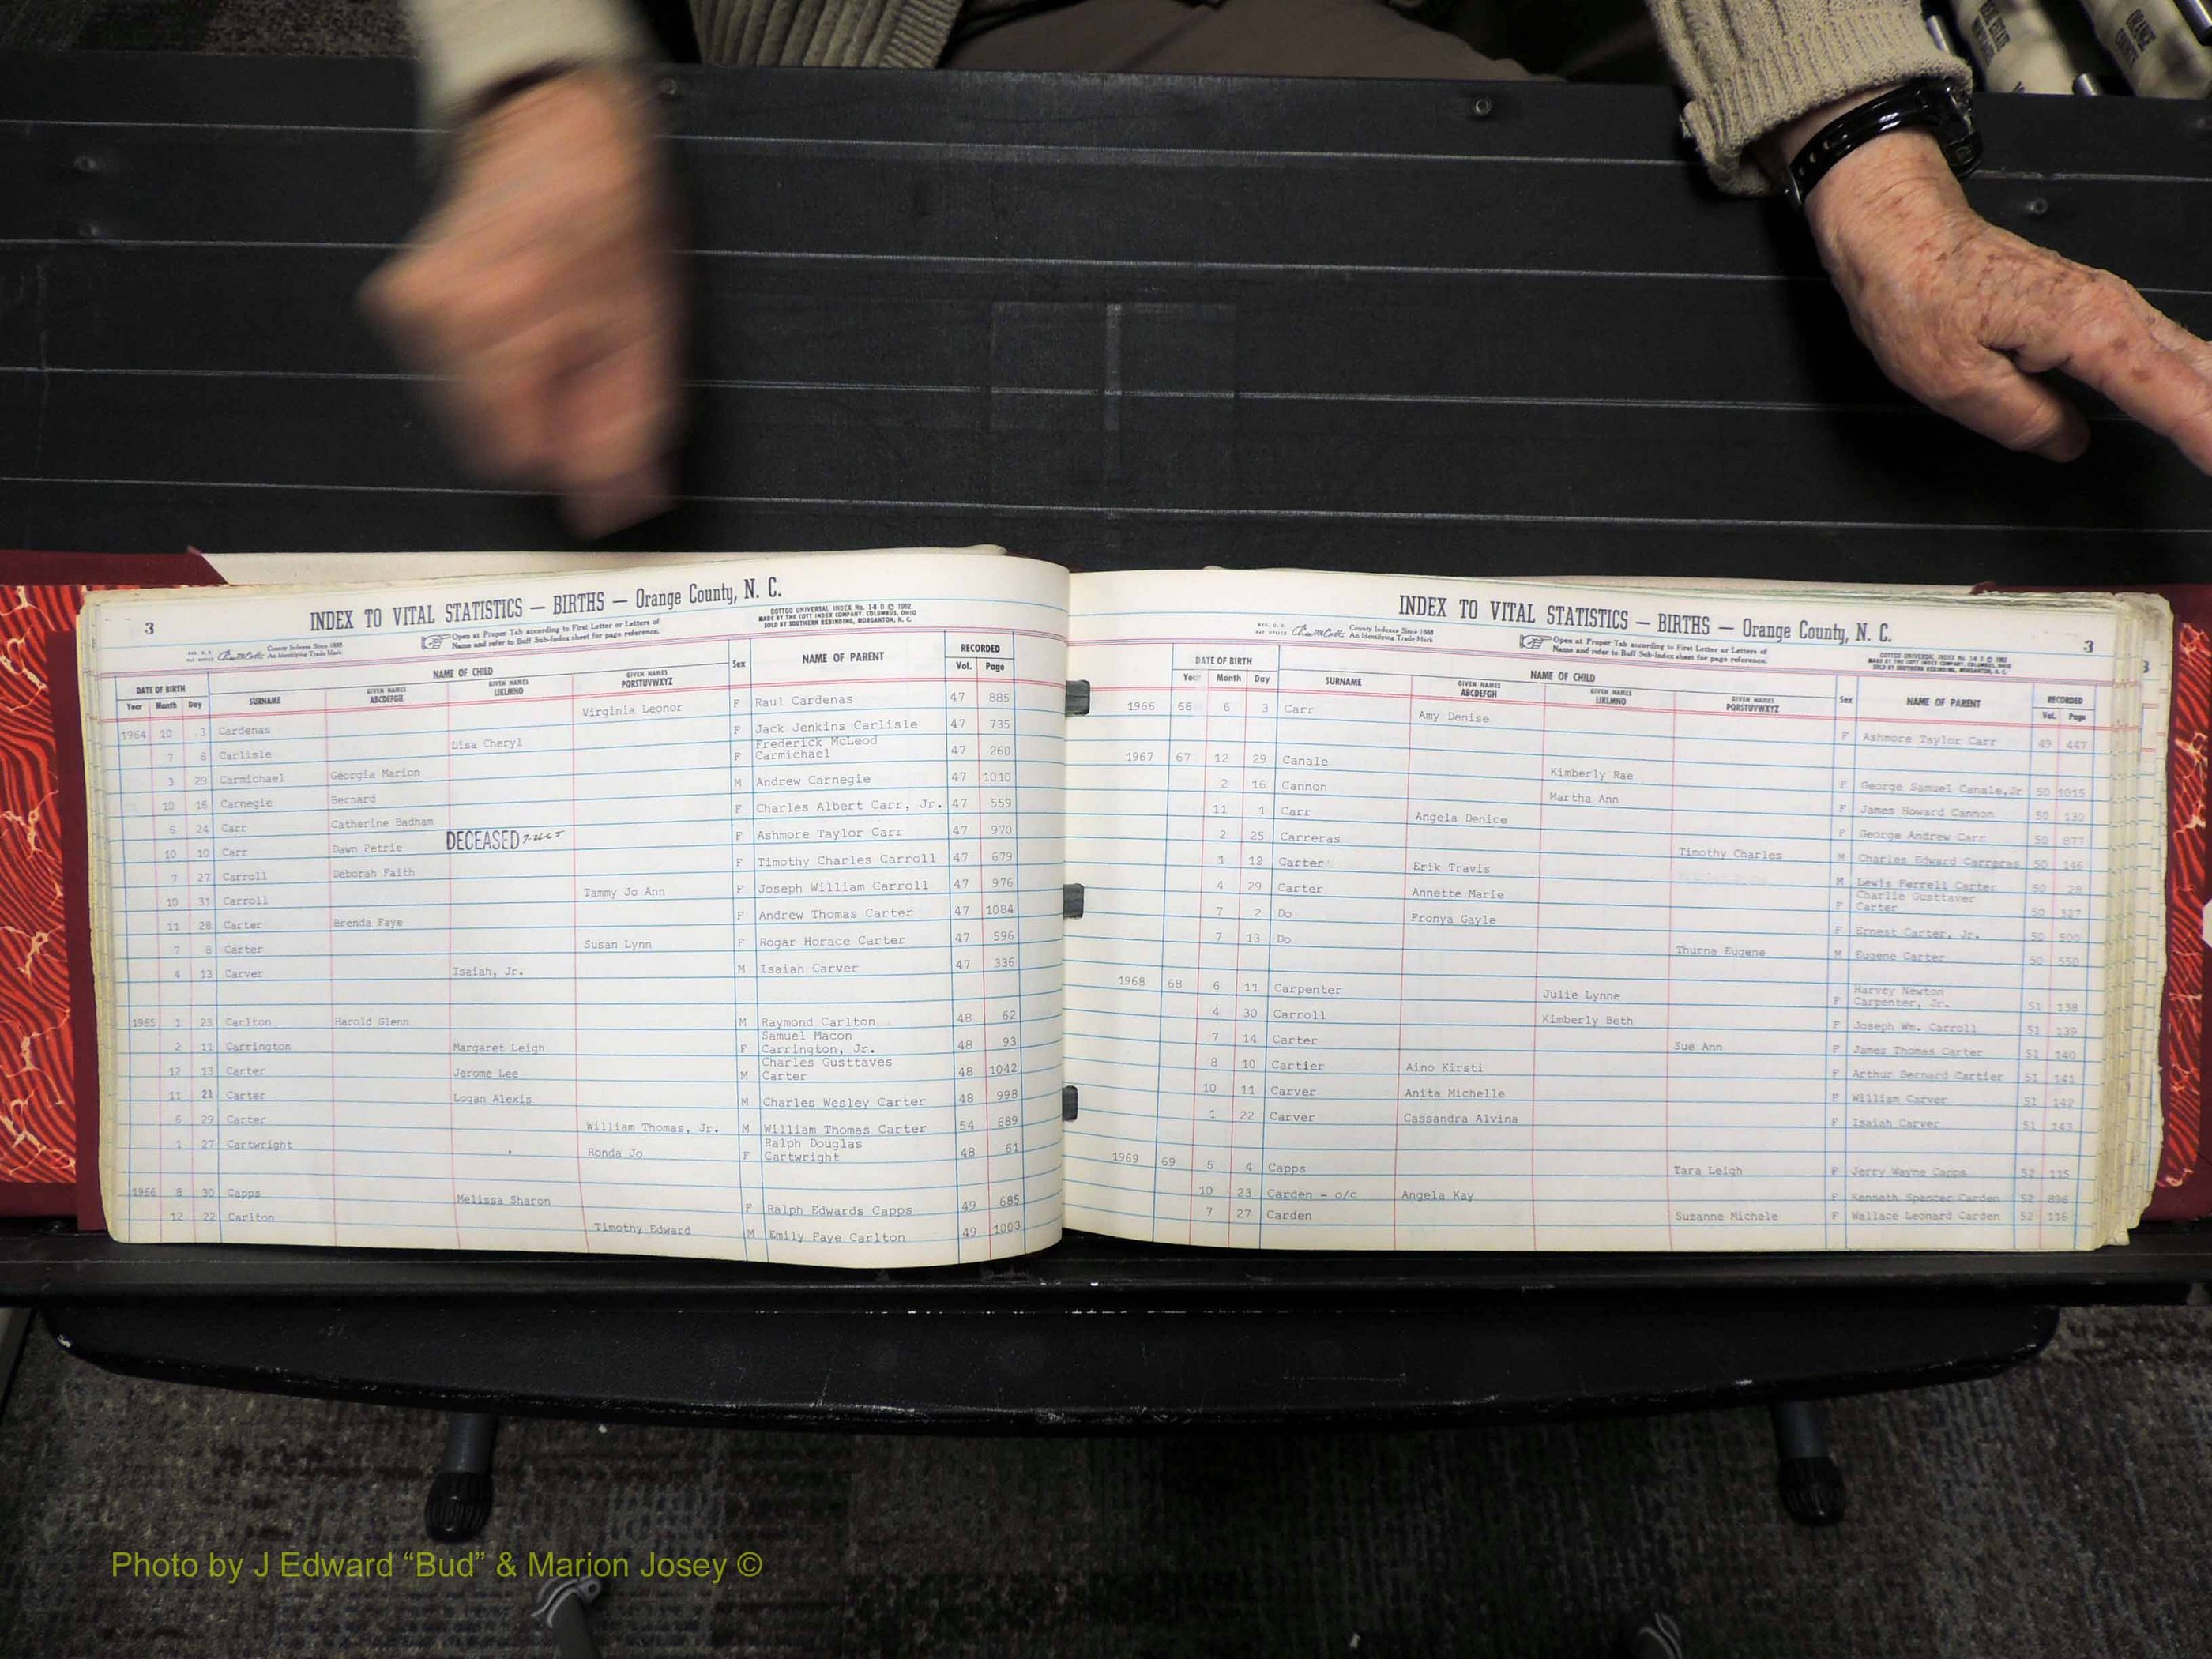 3
INDEX TO VITAL STATISTICS — BIRTHS — Orange County, N. C.
COTTCO UNIVERSAL INDEX No. 1-8 D © 1962
MADE BY THE COTT INDEX COMPANY, COLUMBUS, OHIO
SOLD BY SOUTHERN REBINDING, MORGANTON, N. C.
County Indexes Since 1888
An Identifying Trade Mark
Open at Proper Tab according to First Letter or Letters of
Name and refer to Buff Sub-Index sheet for page reference.
DATE OF BIRTH NAME OF CHILD Sex NAME OF PARENT RECORDED
Year Month Day SURNAME GIVEN NAMES ABCDEFGH GIVEN NAMES IJKLMNO GIVEN NAMES PQRSTUVWXYZ Vol. Page
1964 10 3 Cardenas Virginia Leonor F Raul Cardenas 47 885
7 8 Carlisle Lisa Cheryl F Jack Jenkins Carlisle 47 735
3 29 Carmichael Georgia Marion F Frederick McLeod Carmichael 47 260
10 16 Carnegie Bernard M Andrew Carnegie 47 1010
6 24 Carr Catherine Badham F Charles Albert Carr, Jr. 47 559
10 10 Carr Dawn Petrie DECEASED F Ashmore Taylor Carr 47 970
7 27 Carroll Deborah Faith F Timothy Charles Carroll 47 679
10 31 Carroll Tammy Jo Ann F Joseph William Carroll 47 976
11 28 Carter Brenda Faye F Andrew Thomas Carter 47 1084
7 8 Carter Susan Lynn F Rogar Horace Carter 47 596
4 13 Carver Isaiah, Jr. M Isaiah Carver 47 336
1965 1 23 Carlton Harold Glenn M Raymond Carlton 48 62
2 11 Carrington Margaret Leigh F Samuel Macon Carrington, Jr. 48 93
12 13 Carter Jerome Lee M Charles Gusttaves Carter 48 1042
11 21 Carter Logan Alexis M Charles Wesley Carter 48 998
6 29 Carter William Thomas, Jr. M William Thomas Carter 54 689
1 27 Cartwright Ronda Jo F Ralph Douglas Cartwright 48 61
1966 8 30 Capps Melissa Sharon F Ralph Edwards Capps 49 685
12 22 Carlton Timothy Edward M Emily Faye Carlton 49 1003
INDEX TO VITAL STATISTICS — BIRTHS — Orange County, N. C.
3
County Indexes Since 1888
An Identifying Trade Mark
Open at Proper Tab according to First Letter or Letters of
Name and refer to Buff Sub-Index sheet for page reference.
COTTCO UNIVERSAL INDEX No. 1-8 D © 1962
MADE BY THE COTT INDEX COMPANY, COLUMBUS, OHIO
SOLD BY SOUTHERN REBINDING, MORGANTON, N. C.
DATE OF BIRTH NAME OF CHILD Sex NAME OF PARENT RECORDED
Year Month Day SURNAME GIVEN NAMES ABCDEFGH GIVEN NAMES IJKLMNO GIVEN NAMES PQRSTUVWXYZ Vol. Page
1966 66 6 3 Carr Amy Denise F Ashmore Taylor Carr 49 447
1967 67 12 29 Canale Kimberly Rae F George Samuel Canale,Jr 50 1015
2 16 Cannon Martha Ann F James Howard Cannon 50 130
11 1 Carr Angela Denice F George Andrew Carr 50 877
2 25 Carreras Timothy Charles M Charles Edward Carreras 50 146
1 12 Carter Erik Travis M Lewis Ferrell Carter 50 28
4 29 Carter Annette Marie F Charlie Gusttaver Carter 50 327
7 2 Do Fronya Gayle F Ernest Carter, Jr. 50 500
7 13 Do Thurna Eugene M Eugene Carter 50 550
1968 68 6 11 Carpenter Julie Lynne F Harvey Newton Carpenter, Jr. 51 138
4 30 Carroll Kimberly Beth F Joseph Wm. Carroll 51 139
7 14 Carter Sue Ann F James Thomas Carter 51 140
8 10 Cartier Aino Kirsti F Arthur Bernard Cartier 51 141
10 11 Carver Anita Michelle F William Carver 51 142
1 22 Carver Cassandra Alvina F Isaiah Carver 51 143
1969 69 5 4 Capps Tara Leigh F Jerry Wayne Capps 52 115
10 23 Carden - o/c Angela Kay F Kenneth Spencer Carden 52 896
7 27 Carden Suzanne Michele F Wallace Leonard Carden 52 116
Photo by J Edward “Bud” & Marion Josey ©